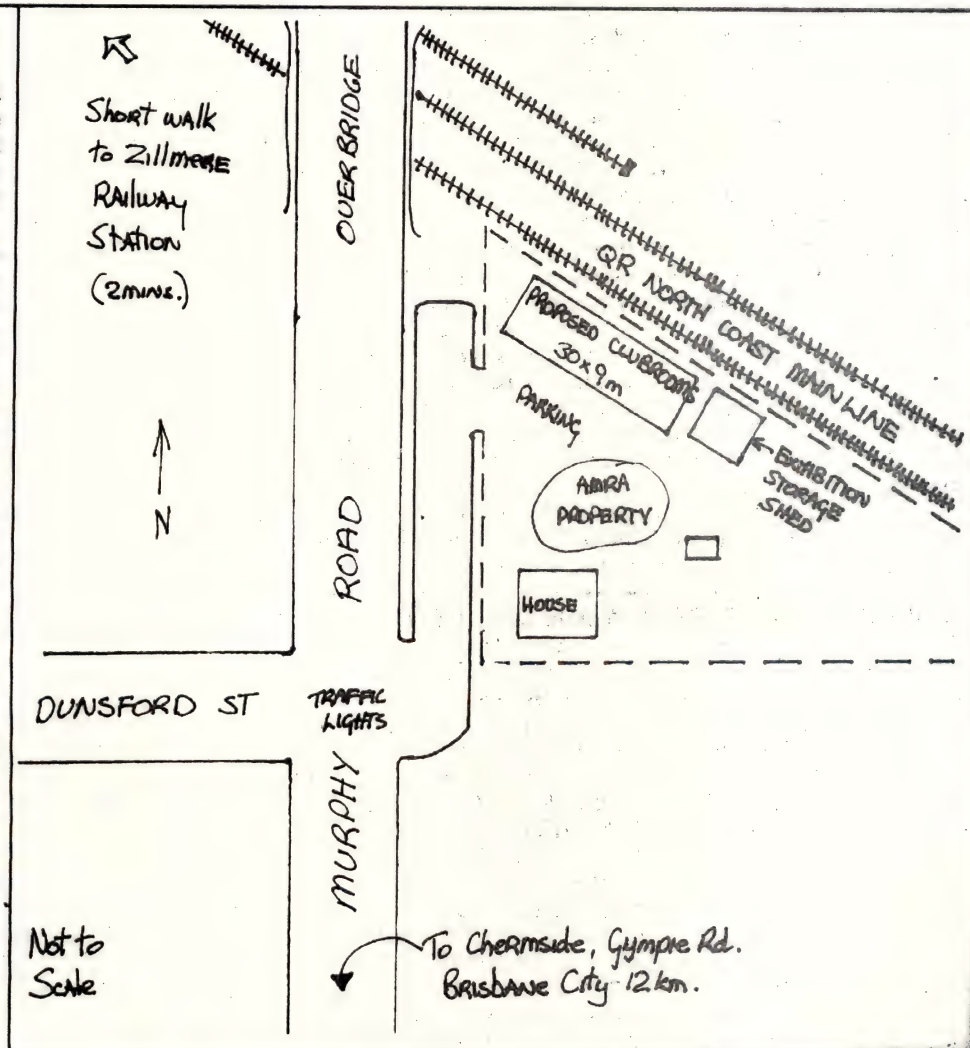 Short walk
to Zillmere
Railway
Station
(2mins.)
N
OVERBRIDGE
ROAD
MURPHY
QR NORTH COAST MAIN LINE
PROPOSED CLUBROOMS
30 x 9m
PARKING
← EXHIBITION
STORAGE
SHED
AMRA
PROPERTY
HOUSE
DUNSFORD ST
TRAFFIC
LIGHTS
Not to
Scale
To Chermside, Gympie Rd.
Brisbane City 12 km.